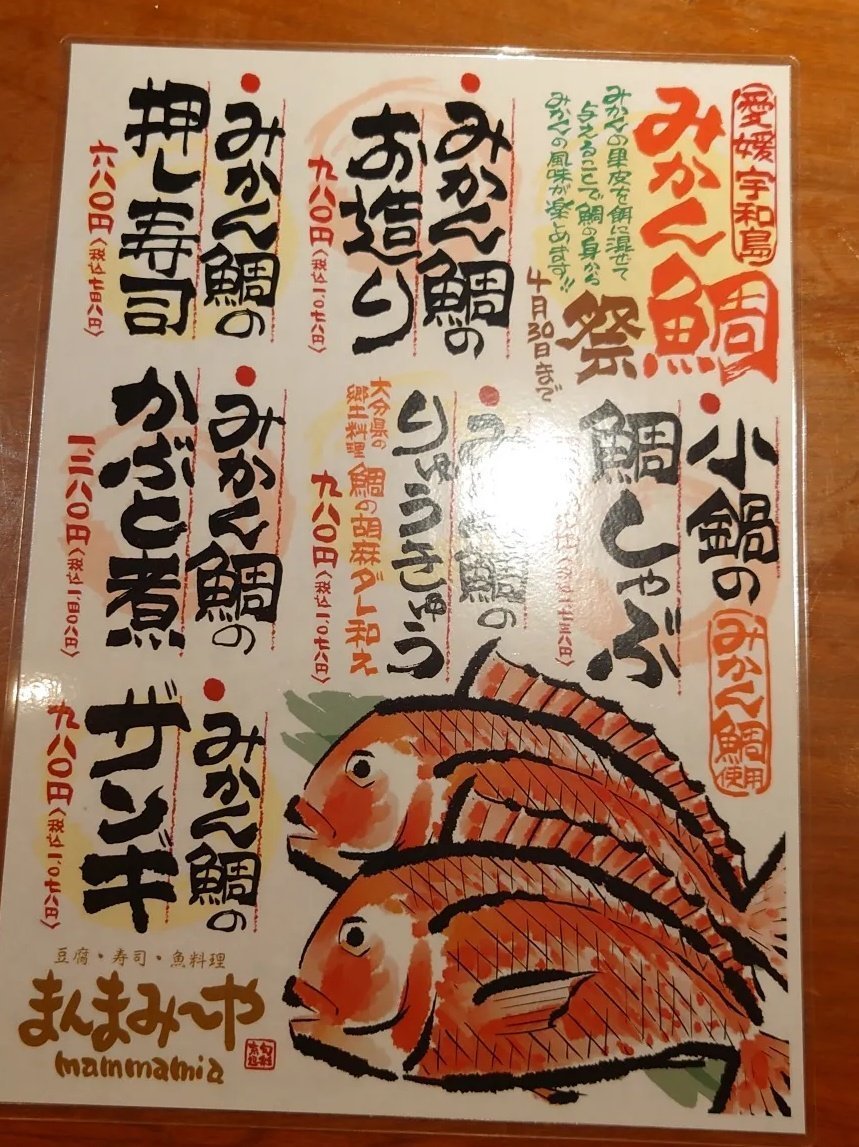 愛媛宇和島
みかん鯛
祭
みかんの果皮を餌に混ぜて
与えることで鯛の身から
みかんの風味が楽しめます!!
4月30日まで
小鍋の
鯛しゃぶ
みかん鯛
使用
七三八円〉
みかん鯛の
お造り
九八〇円〈税込一、〇七八円〉
鯛の
りゅうきゅう
大分県の
郷土料理
鯛の胡麻ダレ和え
九八〇円〈税込一、〇七八円〉
みかん鯛の
押し寿司
六八〇円〈税込七四八円〉
みかん鯛の
かぶと煮
一、二八〇円〈税込一、四〇八円〉
みかん鯛の
ザンギ
九八〇円〈税込一、〇七八円〉
豆腐・寿司・魚料理
まんまみ〜や
mammamia